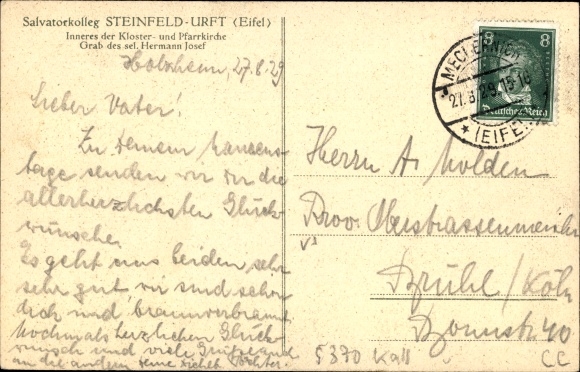 Salvatorkolleg STEINFELD-URFT (Eifel)
Inneres der Kloster- und Pfarrkirche
Grab des sel. Hermann Josef
Holzheim, 27.8.29
Lieber Vater!
Zu Deinem Namens-
tage senden wir dir die
allerherzlichsten Glück-
wünsche.
Es geht uns beiden sehr
sehr gut wir sind schon
dick und braunverbrannt
Nochmals herzlichen Glück-
wunsch und viele Grüße auch
an die andern deine Töchter.
8 8
Deutsches Reich
MECHERNICH
27.8.29.15-16
* (EIFEL)
Herrn A. Molden
Prov. Oberstrassenmeister
Brühl/Köln
Bonnstr. 40
5370 Kall
CC